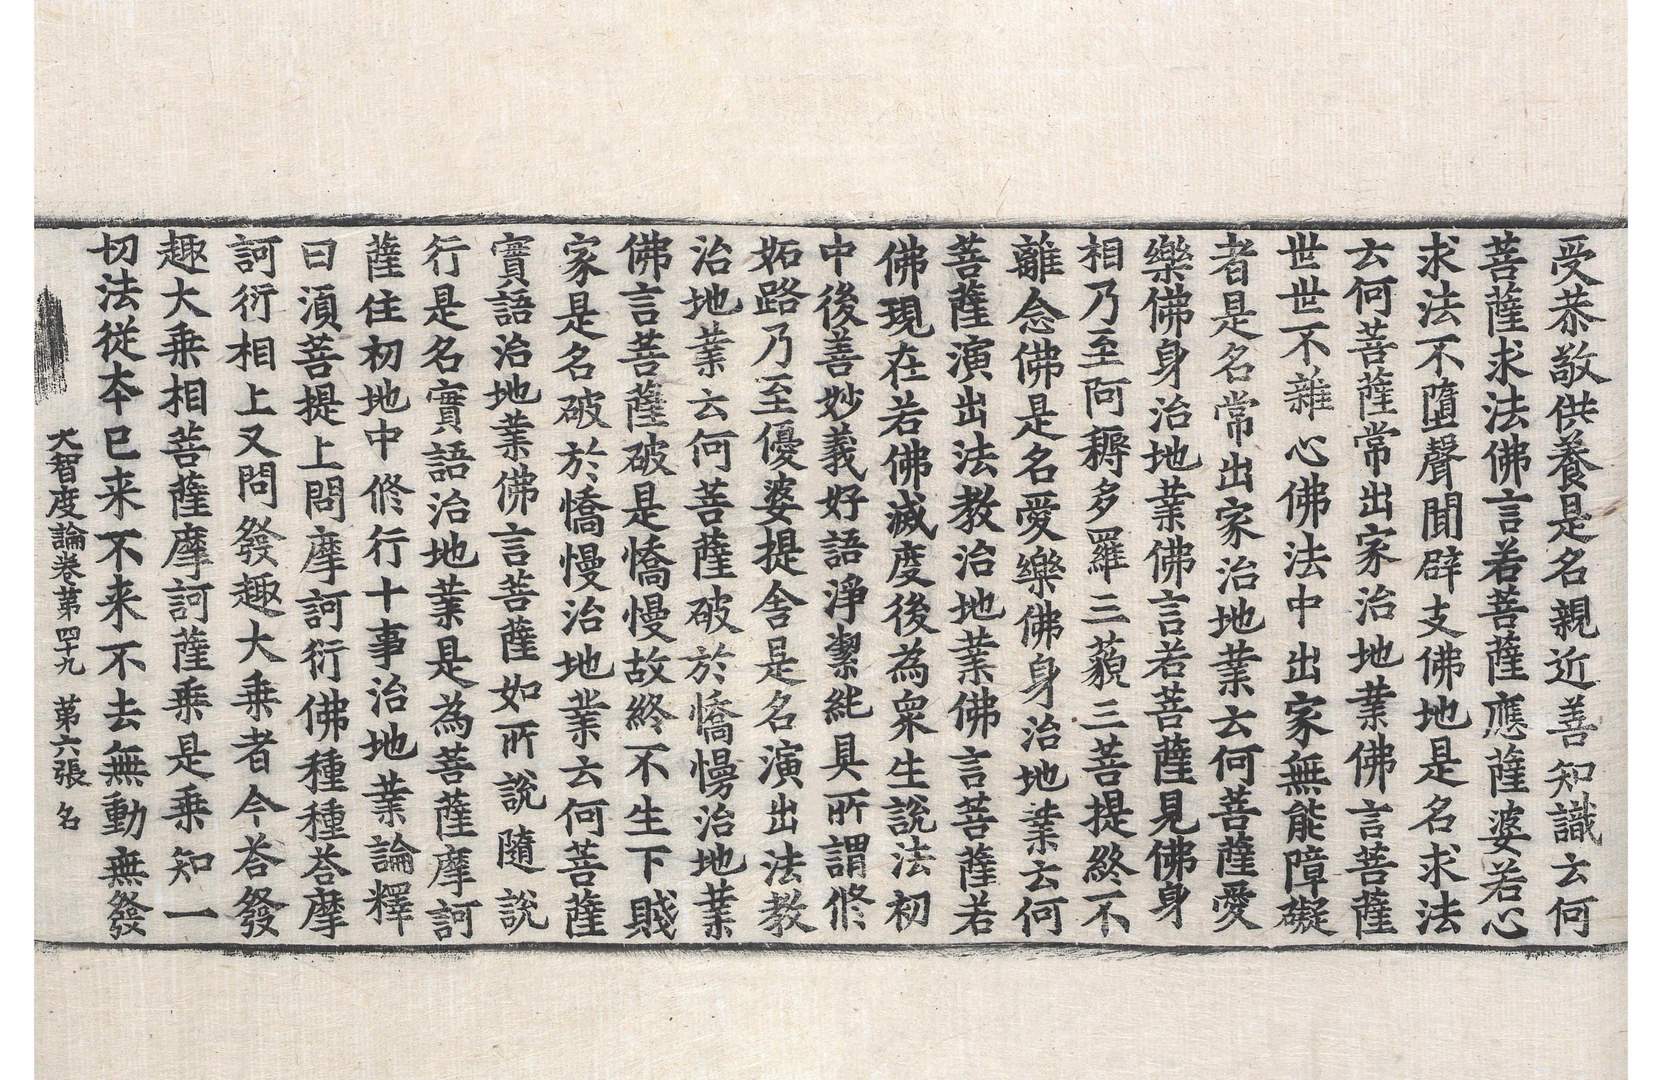 受恭敬供養是名親近善知識云何
菩薩求法佛言若菩薩應薩婆若心
求法不墮聲聞辟支佛地是名求法
云何菩薩常出家治地業佛言菩薩
世世不雜心佛法中出家無能障礙
者是名常出家治地業云何菩薩愛
樂佛身治地業佛言若菩薩見佛身
相乃至阿耨多羅三藐三菩提終不
離念佛是名愛樂佛身治地業云何
菩薩演出法教治地業佛言菩薩若
佛現在若佛滅度後為衆生說法初
中後善妙義好語淨潔純具所謂修
妬路乃至優婆提舍是名演出法教
治地業云何菩薩破於憍慢治地業
佛言菩薩破是憍慢故終不生下賤
家是名破於憍慢治地業云何菩薩
實語治地業佛言菩薩如所說隨說
行是名實語治地業是為菩薩摩訶
薩住初地中修行十事治地業論釋
曰須菩提上問摩訶衍佛種種荅摩
訶衍相上又問發趣大乘者今荅發
趣大乘相菩薩摩訶薩乘是乘知一
切法從本已来不来不去無動無發
大智度論卷第四十九 第六張 名